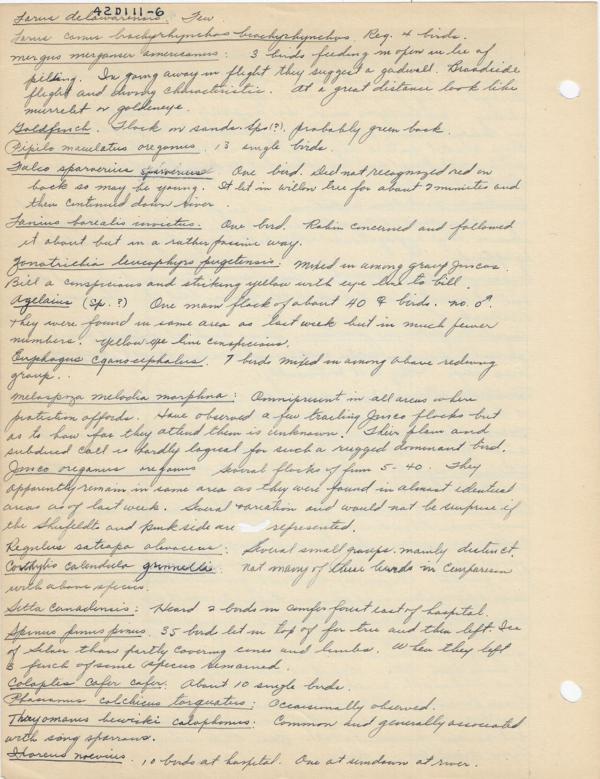 A2D111-6
Larus delawarensis. Few.
Larus canus brachyrhynchos brachyrhynchos. Reg. 4 birds.
Mergus merganser americanus: 3 birds feeding in open in lee of
piling. In going away in flight they suggest a gadwall. Broadside
flight and diving characteristic. At a great distance look like
murrelet or goldeneye.
Goldfinch. Flock in sands. Spo(?). probably green back.
Pipilo maculatus oregonus. 13 single birds.
Falco sparverius sparverius One bird. Did not recognized red on
back so may be young. It lit in willow tree for about 2 minutes and
then continued down river.
Lanius borealis invictus. One bird. Robin concerned and followed
it about but in a rather passive way.
Zonotrichia leucophrys pugetensis. Mixed in among group Juncos.
Bill a conspicuous and striking yellow with eye line to bill.
Agelaius (Sp.?) One main flock of about 40 ♀ birds. no. ♂.
They were found in same area as last week but in much fewer
numbers. yellow eye line conspicuous.
Euphagus cyanocephalus. 7 birds mixed in among above redwing
group..
Melospiza melodia morphna: Omnipresent in all areas where
protection affords. Have observed a few trailing Junco flocks but
as to how far they attend them is unknown! Their plain and
subdued call is hardly logical for such a rugged dominant bird.
Junco oreganus oreganus Several flocks of from 5-40. They
apparently remain in same area as they were found in almost identical
areas as of last week. Several variation and would not be surprise if
the Shufeldts and pink side are represented.
Regulus satrapa olivaceus: Several small groups. mainly distinct.
Corthylio calendula grinnelli: not many of these birds in comparison
with above species.
Sitta canadensis: Heard 2 birds in conifer forest east of hospital.
Spinus pinus pinus. 35 bird lit in top of fir tree and then left.
of silver than partly covering cones and limbs. When they left
3 finch of same species remained.
Colaptes cafer cafer. About 10 single birds.
Phasianus colchicus torquatus: Occasionally observed.
Thryomanes bewicki calophonus: Common and generally associated
with song sparrows.
Ixoreus naevius. 10 birds at hospital. One at sundown at river.